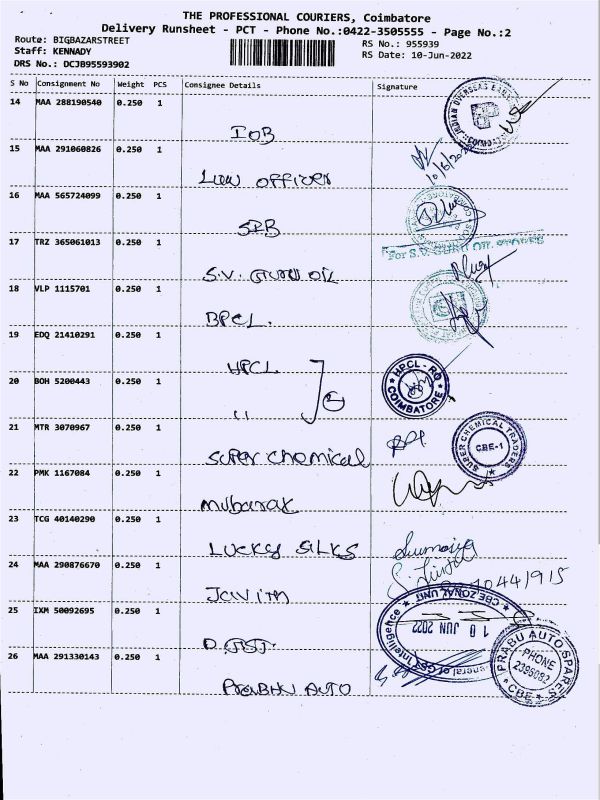 THE PROFESSIONAL COURIERS, Coimbatore
Delivery Runsheet - PCT - Phone No.:0422-3505555 - Page No.:2
Route: BIGBAZARSTREET
RS No.: 955939
Staff: KENNADY
RS Date: 10-Jun-2022
DRS No.: DCJB95593902
S No Consignment No Weight PCS Consignee Details Signature
14 MAA 288190540 0.250 1
IOB
15 MAA 291060826 0.250 1
10/6/202
Law officer
16 MAA 565724099 0.250 1
SIB
17 TRZ 365061013 0.250 1
For S.V. GURU OIL STORES
S.V. GURU OIL
18 VLP 1115701 0.250 1
BPCL.
19 EDQ 21410291 0.250 1
HPCL
HPCL - RO
COIMBATORE
20 BOH 5200443 0.250 1
"
21 MTR 3070967 0.250 1
SUPER CHEMICAL TRADERS
CBE-1
Super chemical
22 PMK 1167084 0.250 1
mubarak
23 TCG 40140290 0.250 1
LUCKY SILKS
Sumaiya
24 MAA 290876670 0.250 1
Javith
25 IXM 50092695 0.250 1
CBE ZONAL UNIT
10 JUN 2022
General of GST Intelligence
26 MAA 291330143 0.250 1
PRABU AUTO SPARES
PHONE
2395082
CBE
Prabhu AUTO